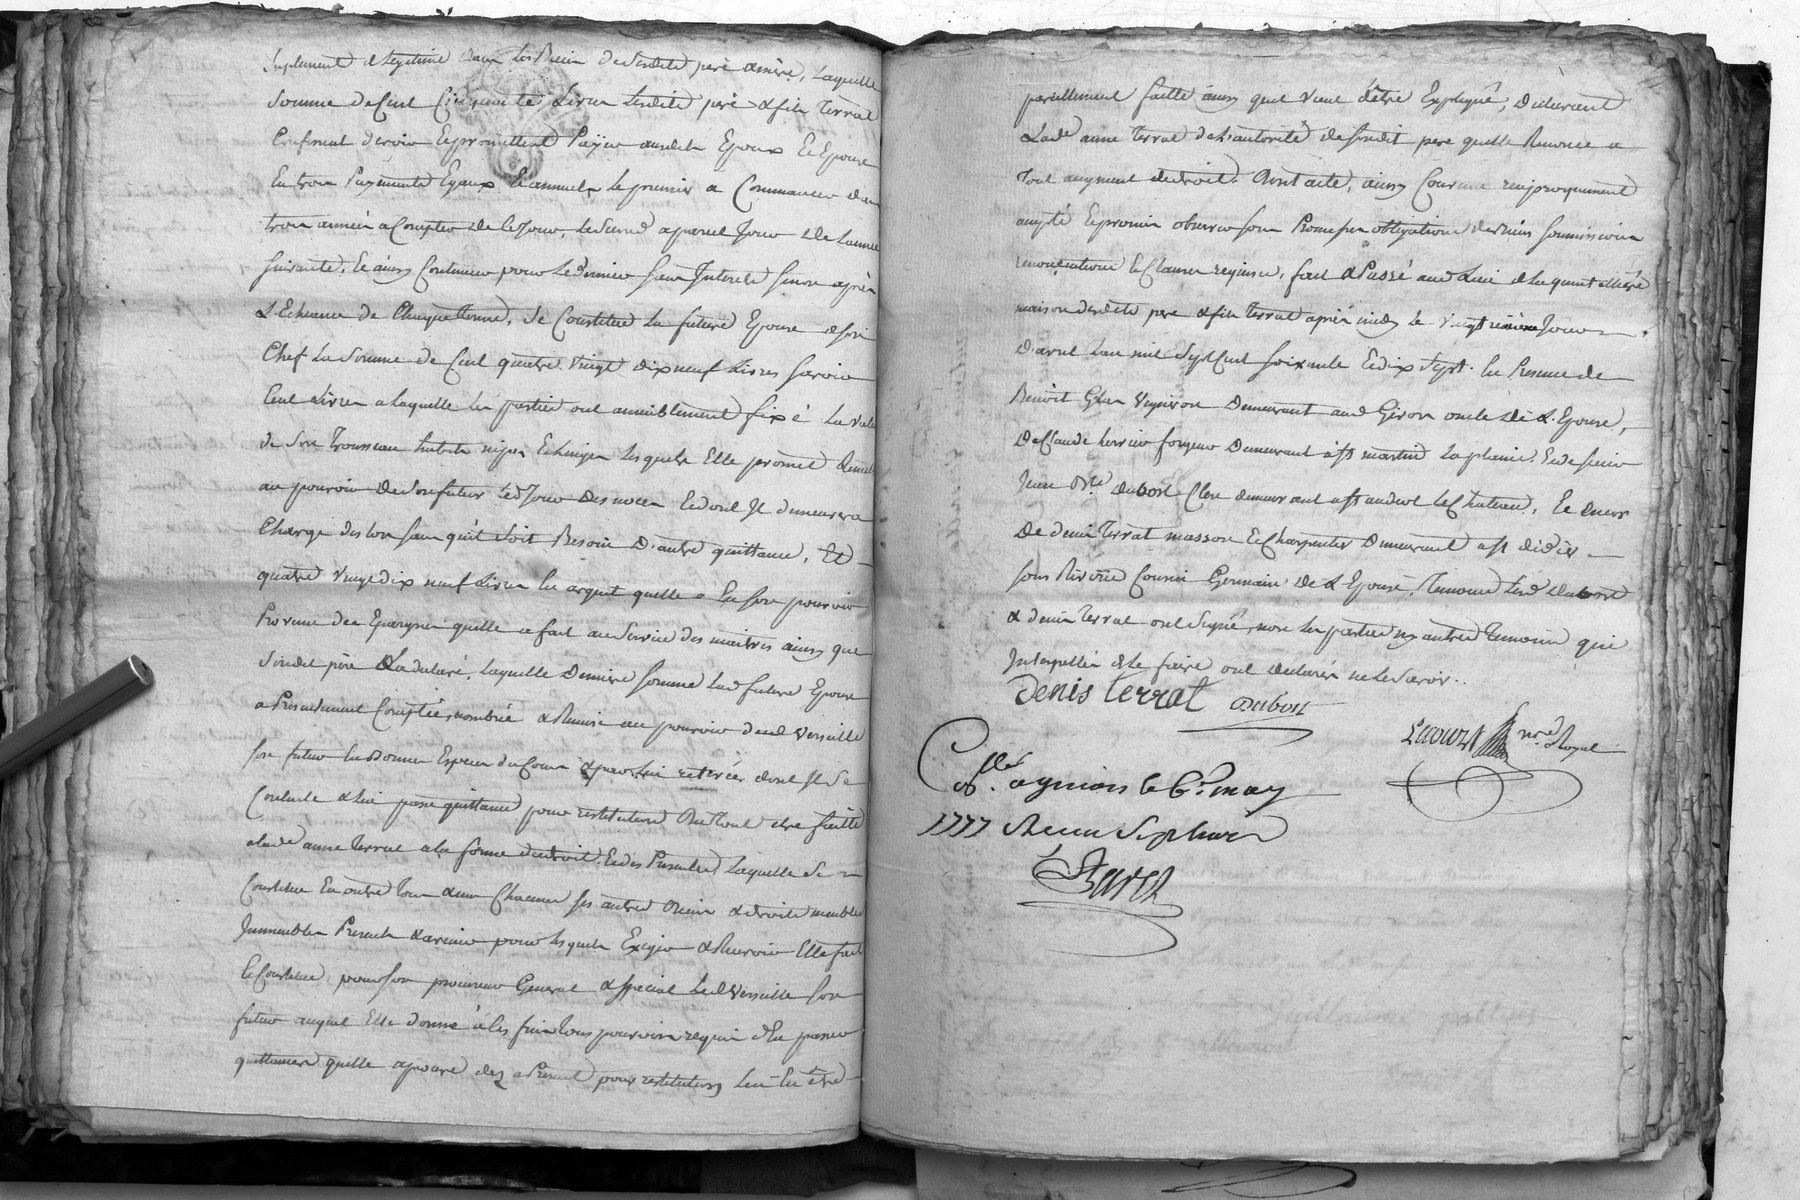 suplement de legitime dans les Biens desesdits pere & mere, Laquelle
Somme de Cent Cinquante Livres lesdits pere & fils Terrat
Confessent devoir Et promettent Païer auxdits Epoux Et Epouse
En trois Payments Egaux Et annuels le premier a Commancer dans
trois années a Compter de Ce Jour, le Second a pareil Jour de L'année
suivante, Et ainsy Continuer pour le dernier sans Interets sinon après
L'Echeance de Chaque terme. Se Constitue la future Epouse de son
Chef La Somme de Cent quatre Vingt dix neuf Livres savoir
Cent Livres a laquelle les parties ont amiablement fixé La Valeur
de Son Trousseau habits nipes Et Linges lesquels Elle promet
au pouvoir de Son futur led. Jour des noces Et dont Il demeurera
Chargé des lors sans qu'il soit Besoin D'autre quittance, Et
quatre Vingt dix neuf Livres En argent quelle a En son pouvoir
Provenu des Epargnes quelle a fait au Service des maitres ainsy que
Sondit père L'a declaré, Laquelle Derniere somme lad. future Epouse
a Presentement Comptée, nombrée & Remise au pouvoir dud. Verseille
son futur En Bonnes Especes du Cours & par lui retirées dont Il Se
Contente & lui passe quittance pour restitution Du tout être faitte
a lad.e anne Terrat a la forme du droit Et des Presentes, Laquelle Se
Constitue En outre tous & uns Chacuns ses autres Biens & droits meubles
Immeubles Presents & avenir pour lesquels Exiger & Recevoir Elle fait
Et Constitue pour son procureur General & special led. Verseille son
futur auquel Elle donne à Ces fins tous pouvoirs requis & En passer
quittances quelle aprouve dez a Present pour restitution Lui En être
pareillement faitte ainsy que Vient d'être Expliqué, Déclarant
Lad.e anne Terrat de L'autorité de sondit pere quelle Renonce a
Tout augment de droit. Dont acte, ainsy Convenu reciproquement
acepté Et promis observer sous Promesses obligations des Biens soumissions
renonciations Et Clauses requises, fait & Passé aud. Lieu
maison desdits pere & fils Terrat après midy le Vingt Jour
D'avril L'an mil Sept Cent soixante Et dix Sept. En Presence de
Benoit Demeurant aud. Giron oncle de L'Epouse,
De Claude Demeurant a St martin La plaine, Et de sieur
Jean Bte. Dubost Clerc demeurant a St andeol le Chateau, Et Encor
De denis Terrat masson Et Charpentier Demeurant a St didier
sous Riverie Cousin Germain De L'Epouse, Temoins led. Dubost
& denis Terrat ont Signé, non les parties ny autres Temoins qui
Interpellés de le faire ont declarés ne le savoir..
Denis terrat Dubost
nre. Royal
Collé. a le 6.e may
1777 Recu Sept livres